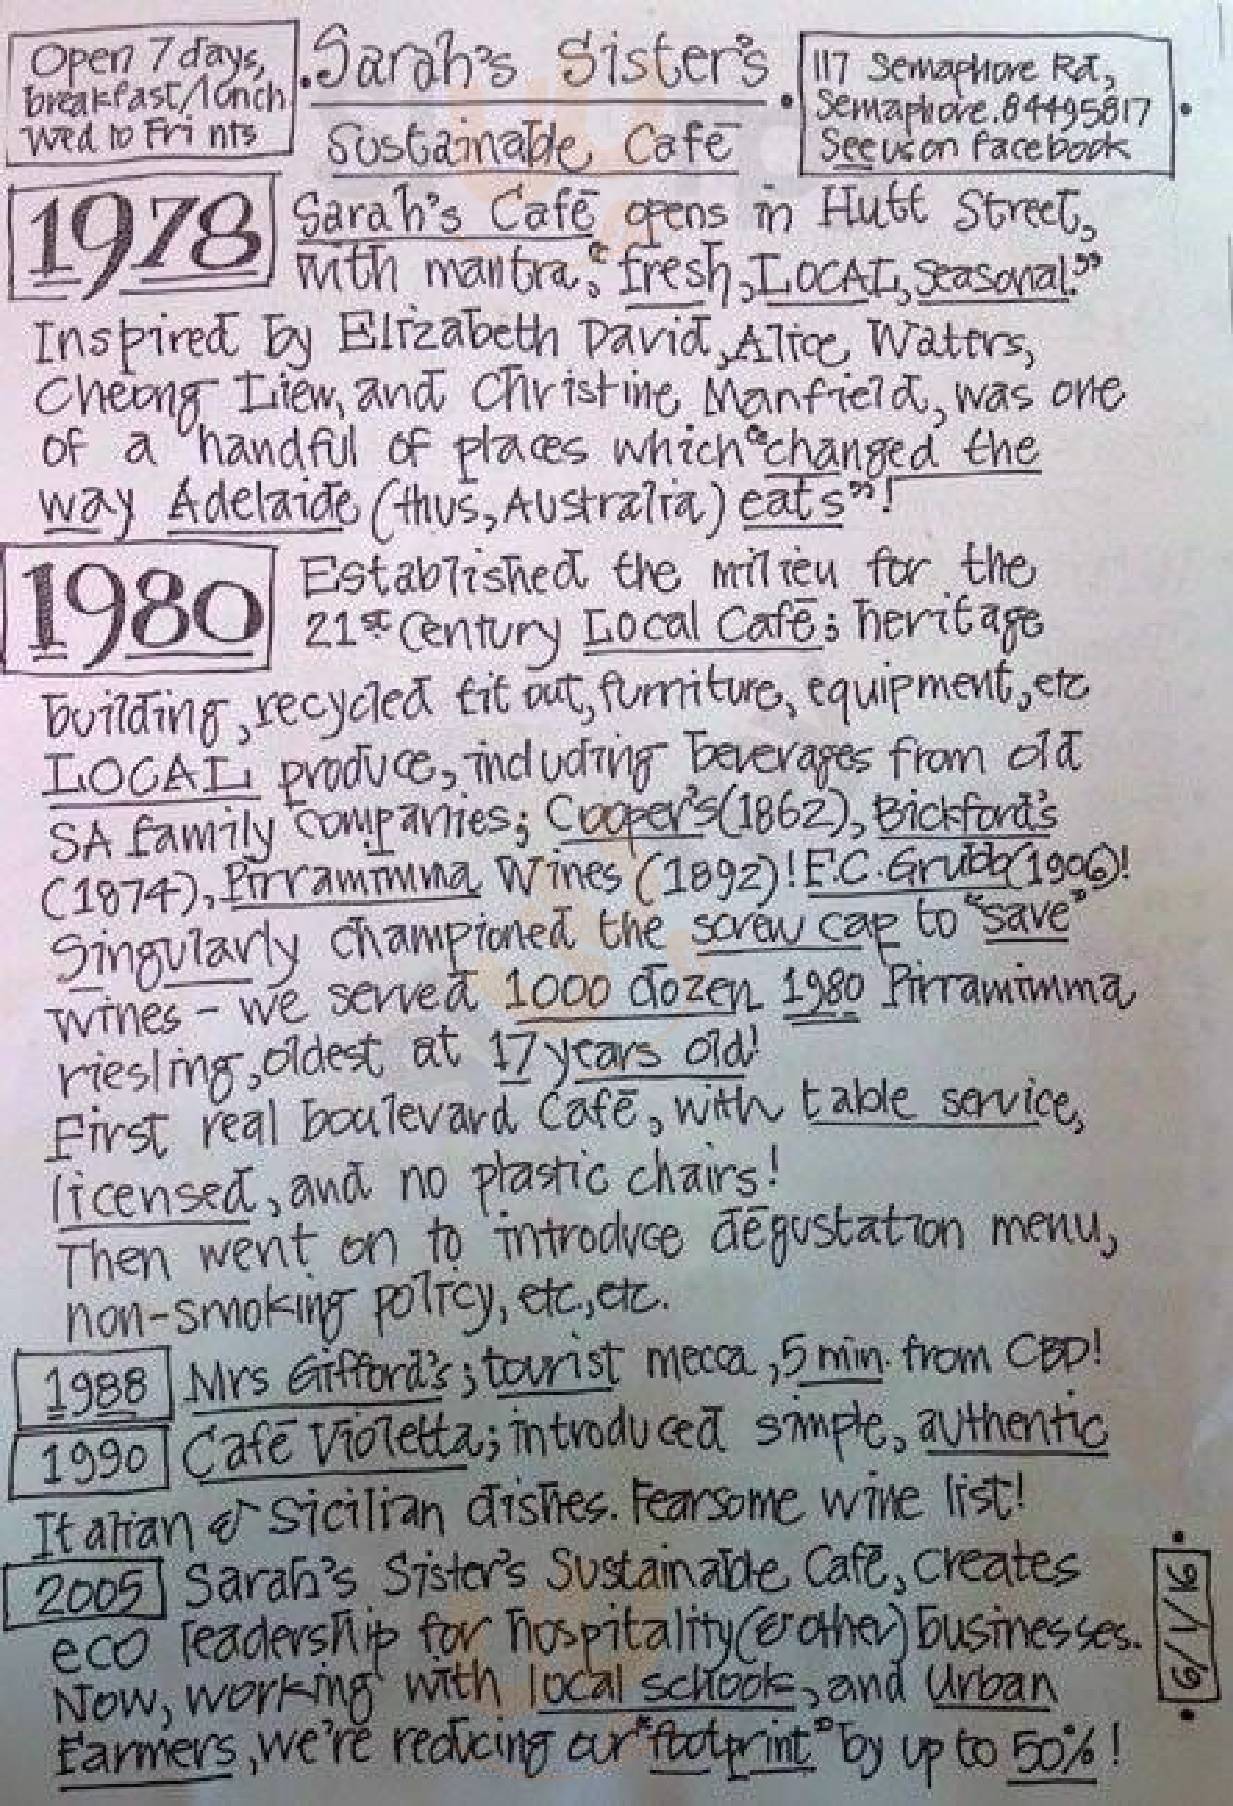 Open 7 days,
breakfast/lunch
Wed to Fri nts
Sarah's Sister's
Sustainable Café
117 Semaphore Rd,
Semaphore.84495817
See us on facebook
1978
Sarah's Café opens in Hutt Street,
with mantra, "fresh, LOCAL, seasonal."
Inspired by Elizabeth David, Alice Waters,
Cheong Liew, and Christine Manfield, was one
of a handful of places which "changed the
way Adelaide (thus, Australia) eats"!
1980
Established the milieu for the
21st Century Local Café; heritage
building, recycled fit out, furniture, equipment, etc
LOCAL produce, including beverages from old
SA family companies; Cooper's (1862), Bickford's
(1874), Pirramimma Wines (1892)! F.C. Grubb (1906)!
Singularly championed the screw cap to "save"
wines - we served 1000 dozen 1980 Pirramimma
riesling, oldest at 17 years old!
First real boulevard Café, with table service,
licensed, and no plastic chairs!
Then went on to introduce dégustation menu,
non-smoking policy, etc, etc.
1988 Mrs Gifford's; tourist mecca, 5 min. from CBD!
1990 Café Violetta; introduced simple, authentic
Italian & Sicilian dishes. Fearsome wine list!
2005 Sarah's Sister's Sustainable Café, creates
eco leadership for hospitality (& other) businesses.
Now, working with local schools, and Urban
Farmers, we're reducing our "footprint" by up to 50% !
6/1/16